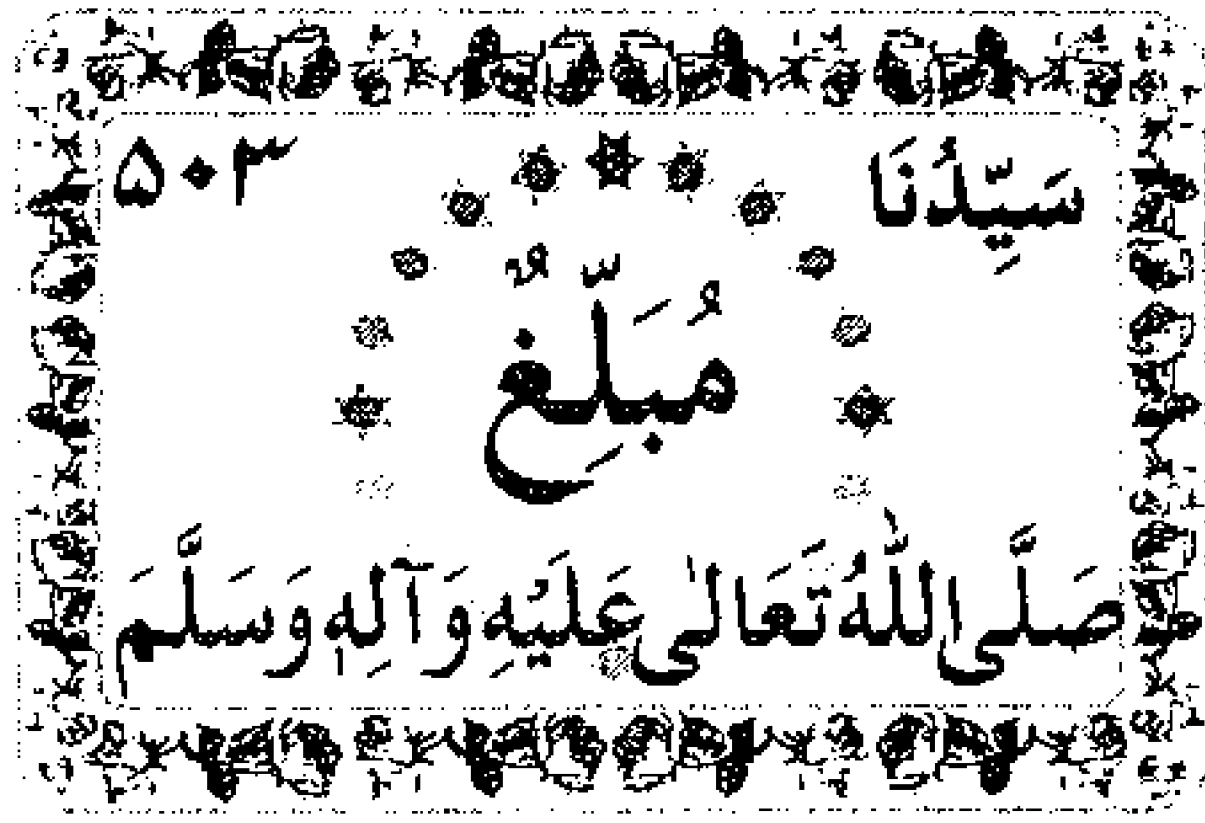 سَیِّدُنَا ۵۰۳
مُبَلِّغٌ
صَلَّی اللّٰهُ تَعَالٰی عَلَیْهِ وَآلِهٖ وَسَلَّمَ